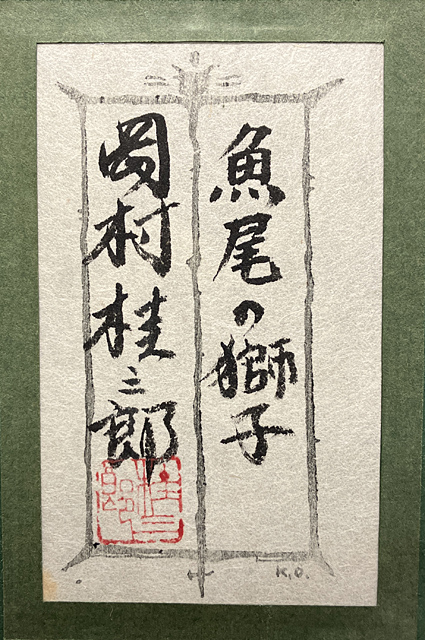 魚尾の獅子
岡村桂三郎
桂三郎
K.O.